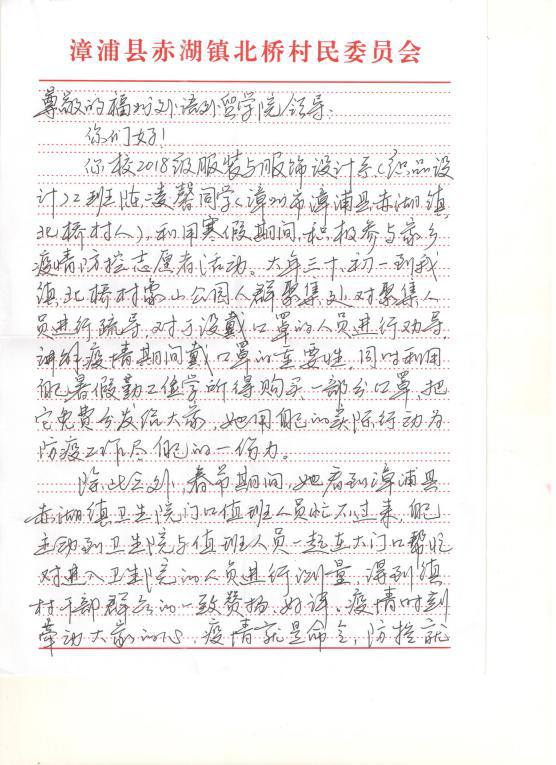 漳浦县赤湖镇北桥村民委员会
尊敬的福州外语外贸学院领导:
你们好!
你校2018级服装与服饰设计系(织品设
计)2班陈凌馨同学(漳州市漳浦县赤湖镇
北桥村人),利用寒假期间,积极参与家乡
疫情防控志愿者活动。大年三十、初一到我
镇北桥村雷山公园人群聚集处对聚集人
员进行疏导,对于没戴口罩的人员进行劝导,
讲解疫情期间戴口罩的重要性,同时利用
自己暑假勤工俭学所得购买一部分口罩,把
它免费分发给大家,她用自己的实际行动为
防疫工作尽自己的一份力。
除此之外,春节期间,她看到漳浦县
赤湖镇卫生院门口值班人员忙不过来,自己
主动到卫生院与值班人员一起在大门口帮忙
对进入卫生院的人员进行测量,得到镇
村干部群众的一致赞扬、好评,疫情时刻
牵动大家的心,疫情就是命令,防控就